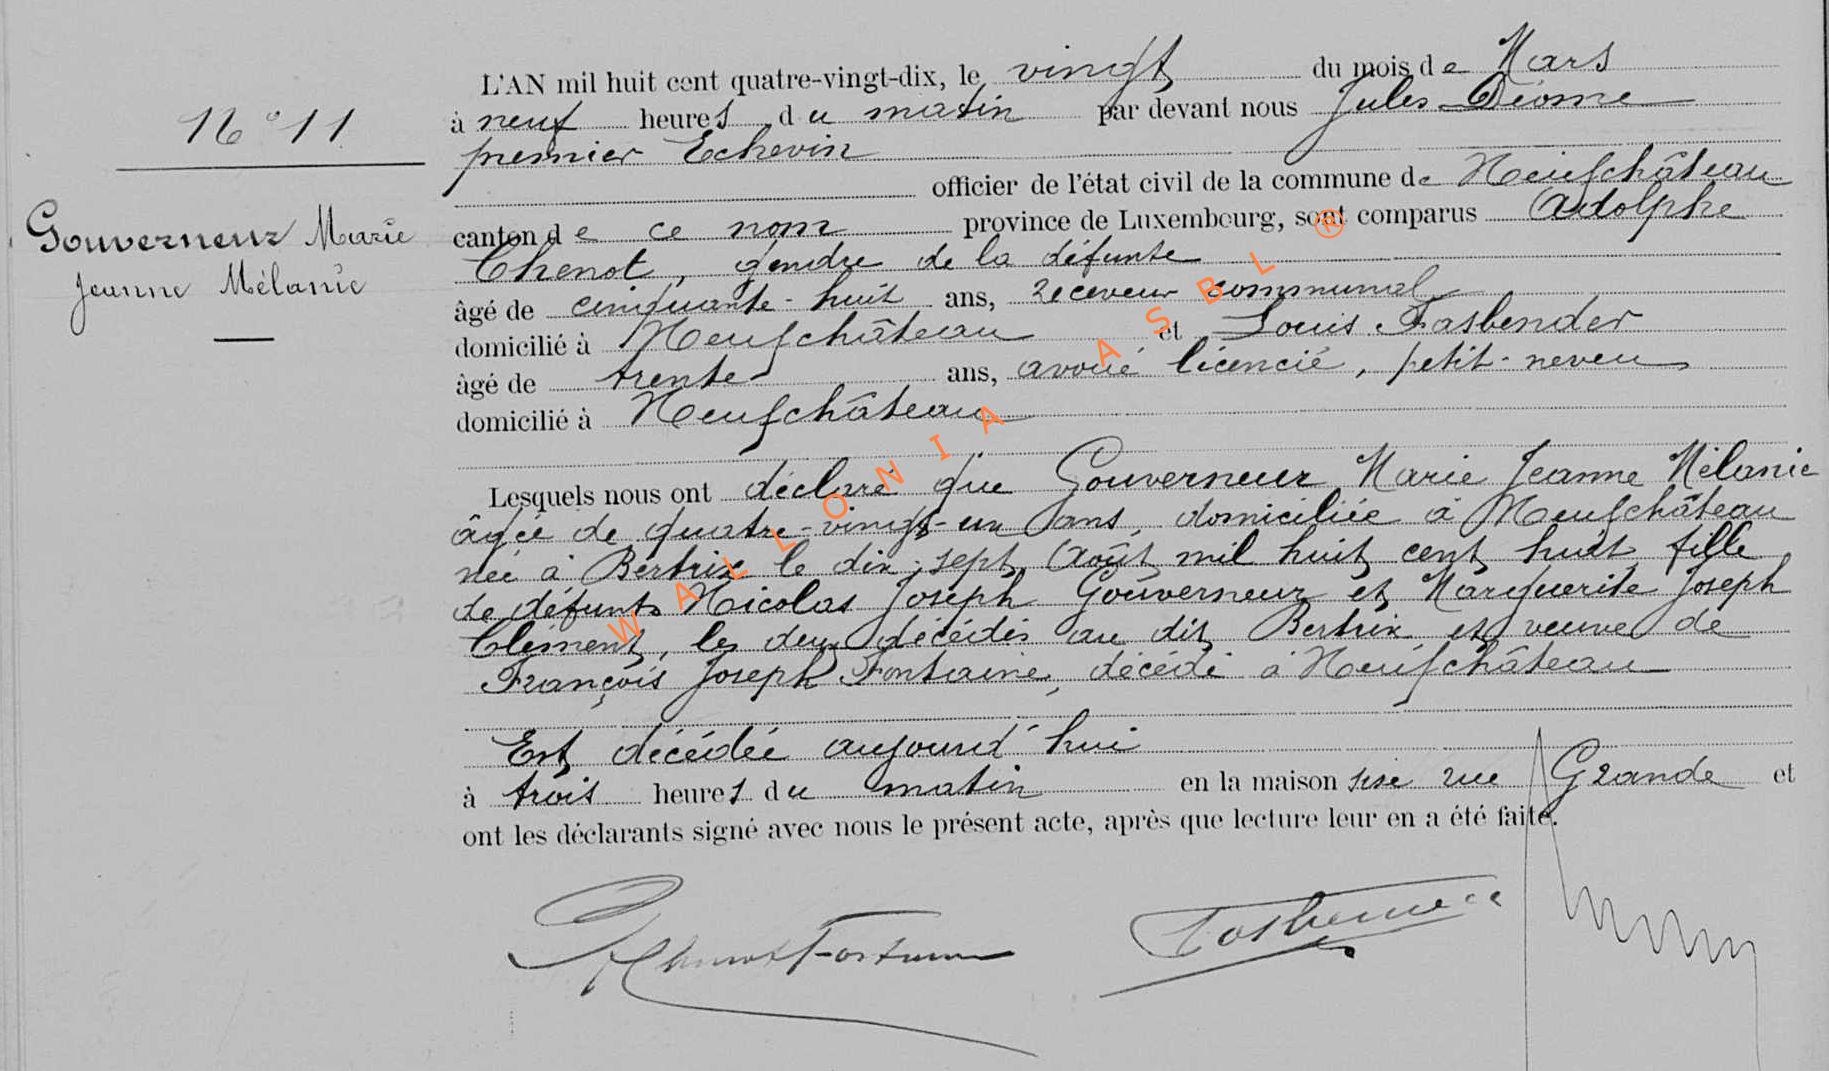 N° 11
Gouverneur Marie
Jeanne Mélanie
L'AN mil huit cent quatre-vingt-dix, le vingt du mois de Mars
à neuf heures du matin par devant nous Jules Déome
premier Echevin
officier de l'état civil de la commune de Neufchâteau
canton de ce nom province de Luxembourg, sont comparus Adolphe
Chenot, gendre de la défunte
âgé de cinquante-huit ans, receveur communal
domicilié à Neufchâteau et Louis Fasbender
âgé de trente ans, avoué licencié, petit-neveu
domicilié à Neufchâteau
Lesquels nous ont déclaré que Gouverneur Marie Jeanne Mélanie
âgée de quatre-vingt-un ans, domiciliée à Neufchâteau
née à Bertrix le dix-sept Août mil huit cent huit fille
de défunts Nicolas Joseph Gouverneur et Marguerite Joseph
Clément, les deux décédés au dit Bertrix et veuve de
François Joseph Fontaine, décédé à Neufchâteau
Est décédée aujourd'hui
à trois heures du matin en la maison sise rue Grande et
ont les déclarants signé avec nous le présent acte, après que lecture leur en a été faite.
Chenot Fontaine Fasbender
WALLONIA ASBL ®